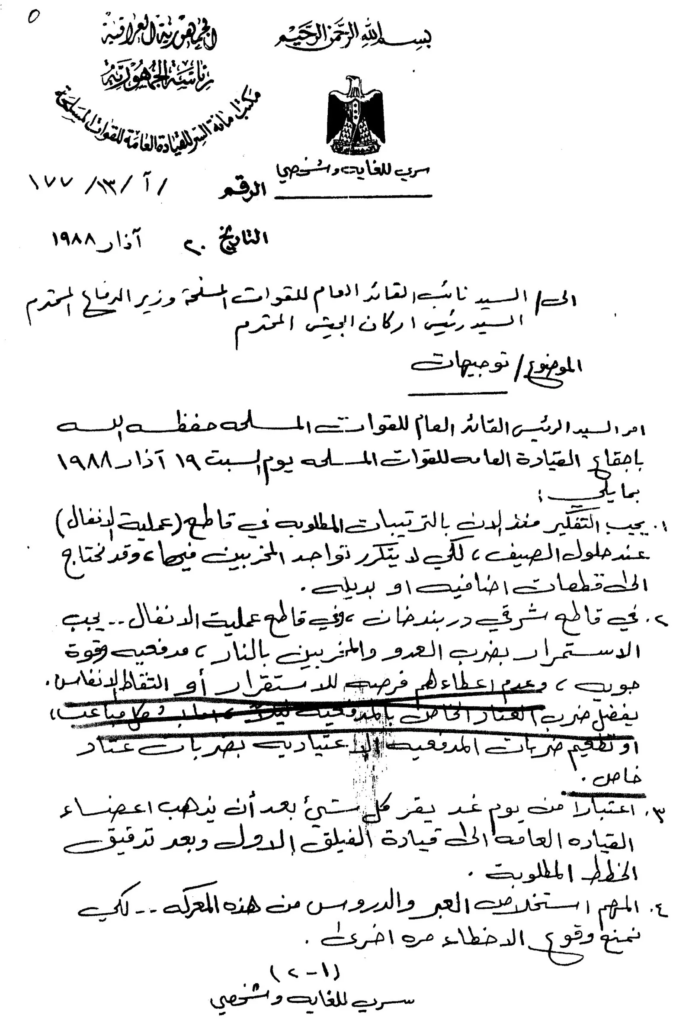 الجمهورية العراقية
رئاسة الجمهورية
مكتب امانة السر للقيادة العامة للقوات المسلحة
بسم الله الرحمن الرحيم
سري للغاية وشخصي
الرقم / أ/ ١٣/ ١٧٧
التاريخ ٢٠ آذار ١٩٨٨
الى/ السيد نائب القائد العام للقوات المسلحة وزير الدفاع المحترم
السيد رئيس اركان الجيش المحترم
الموضوع/ توجيهات
امر السيد الرئيس القائد العام للقوات المسلحه حفظه الله
باجتماع القيادة العامه للقوات المسلحه يوم السبت ١٩ آذار ١٩٨٨
بمايلي :
١. يجب التفكير منذ الان بالترتيبات المطلوبه في قاطع (عملية الانفال)
عند حلول الصيف ، لكي لا يتكرر تواجد المخربين فيها ، وقد نحتاج
الى قطعات اضافيه او بديله .
٢. في قاطع شرقي دربندخان ، وفي قاطع عملية الانفال .. يجب
الاستمرار بضرب العدو والمخربين بالنار ، مدفعيه وقوة
جويه ، وعدم اعطاءهم فرصه للاستقرار أو التقاط الانفاس .
يفضل ضرب العتاد الخاص بالمدفعيه ليلاً ، اما بشكل مباغت ،
او تطعيم ضربات المدفعيه الاعتياديه بضربات عتاد
خاص .
٣. اعتباراً من يوم غد يقر كل شيئ بعد أن يذهب اعضاء
القياده العامه الى قيادة الفيلق الاول وبعد تدقيق
الخطط المطلوبة .
٤. المهم استخلاص العبر والدروس من هذه المعركه .. لكي
نمنع وقوع الاخطاء مره اخرى .
(١-٢)
سري للغايه وشخصي